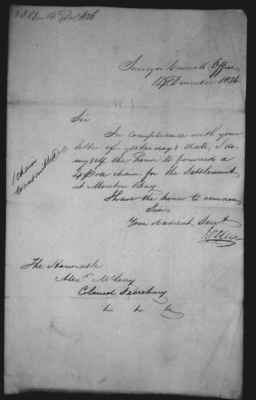 Surveyor General's Office
December 1836
Sir
In compliance with your
letter of yesterday's date, I do
myself the honor to forward a
chain for the Settlement
at Moreton Bay
I have the honor to remain
Sir
Your obedient Servt
1 chain
transmitted
The Honorable
Alexr McLeay
Colonial Secretary